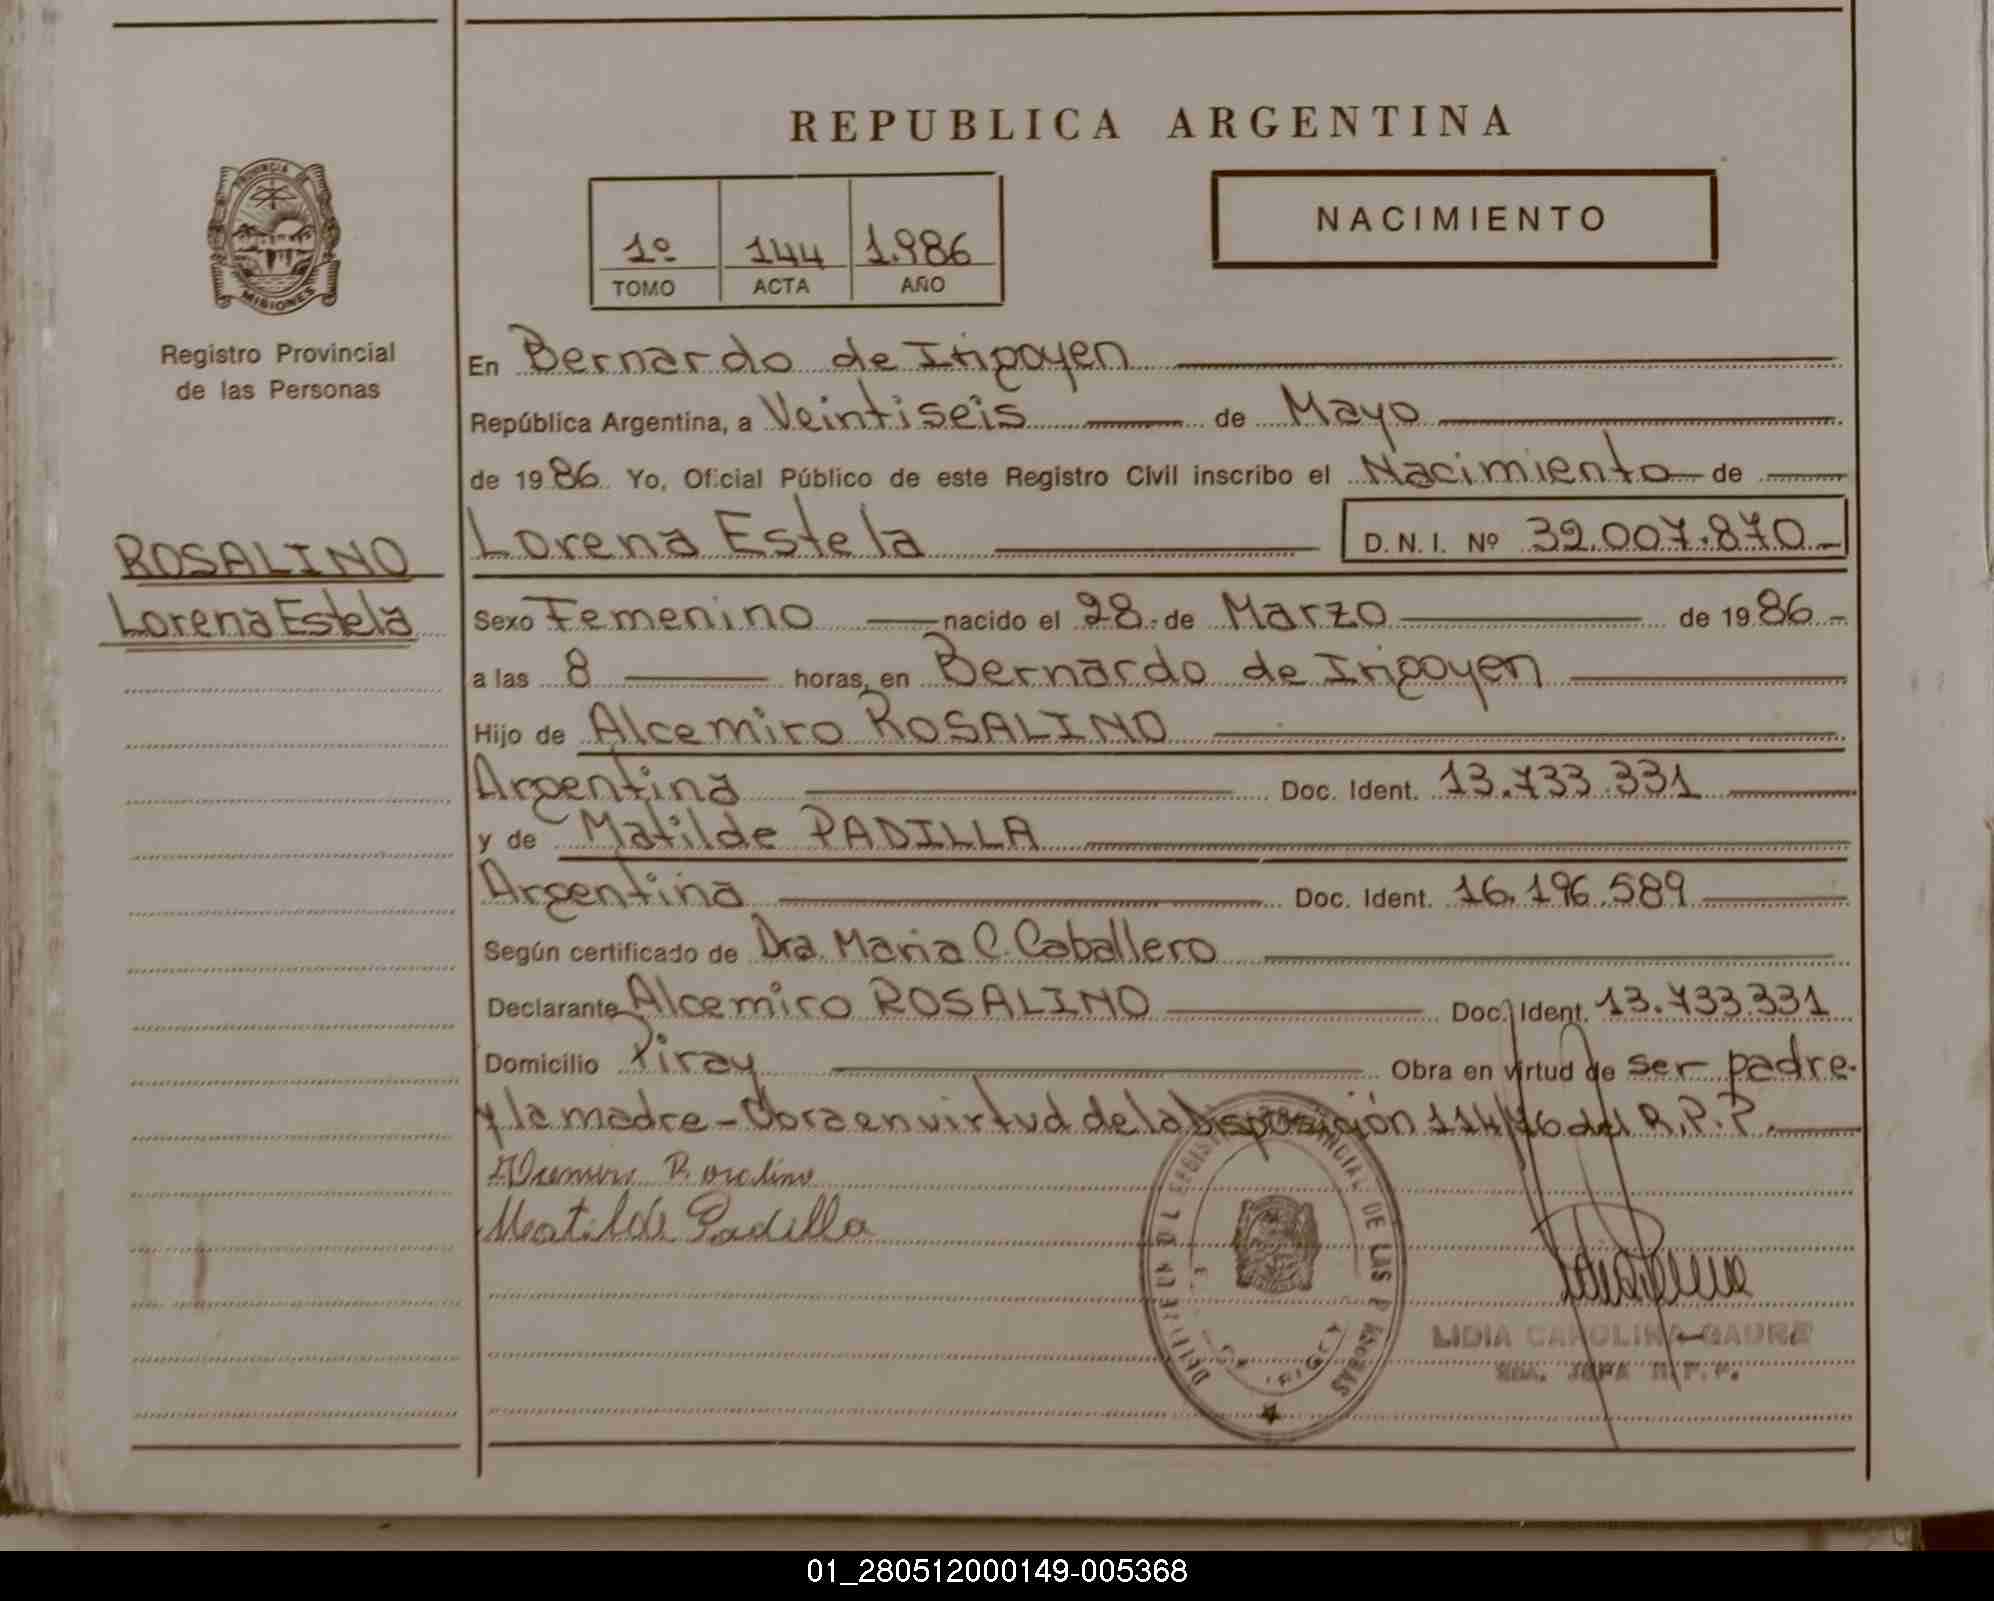 REPUBLICA ARGENTINA
NACIMIENTO
1º 144 1.986
TOMO ACTA AÑO
PROVINCIA DE
MISIONES
Registro Provincial
de las Personas
ROSALINO
Lorena Estela
En Bernardo de Irigoyen
República Argentina, a Veintiseis de Mayo
de 1986 Yo, Oficial Público de este Registro Civil inscribo el Nacimiento de
Lorena Estela D. N. I. Nº 32.007.870
Sexo Femenino nacido el 28 de Marzo de 1986
a las 8 horas, en Bernardo de Irigoyen
Hijo de Alcemiro ROSALINO
Argentina Doc. Ident. 13.733.331
y de Matilde PADILLA
Argentina Doc. Ident. 16.196.589
Según certificado de Dra. Maria C. Caballero
Declarante Alcemiro ROSALINO Doc. Ident. 13.733.331
Domicilio Piray Obra en virtud de ser padre
y la madre - Obra en virtud de la Disposición 114/76 del R.P.P.
Matilde Padilla
LIDIA CAROLINA
JEFA R.P.P.
01_280512000149-005368